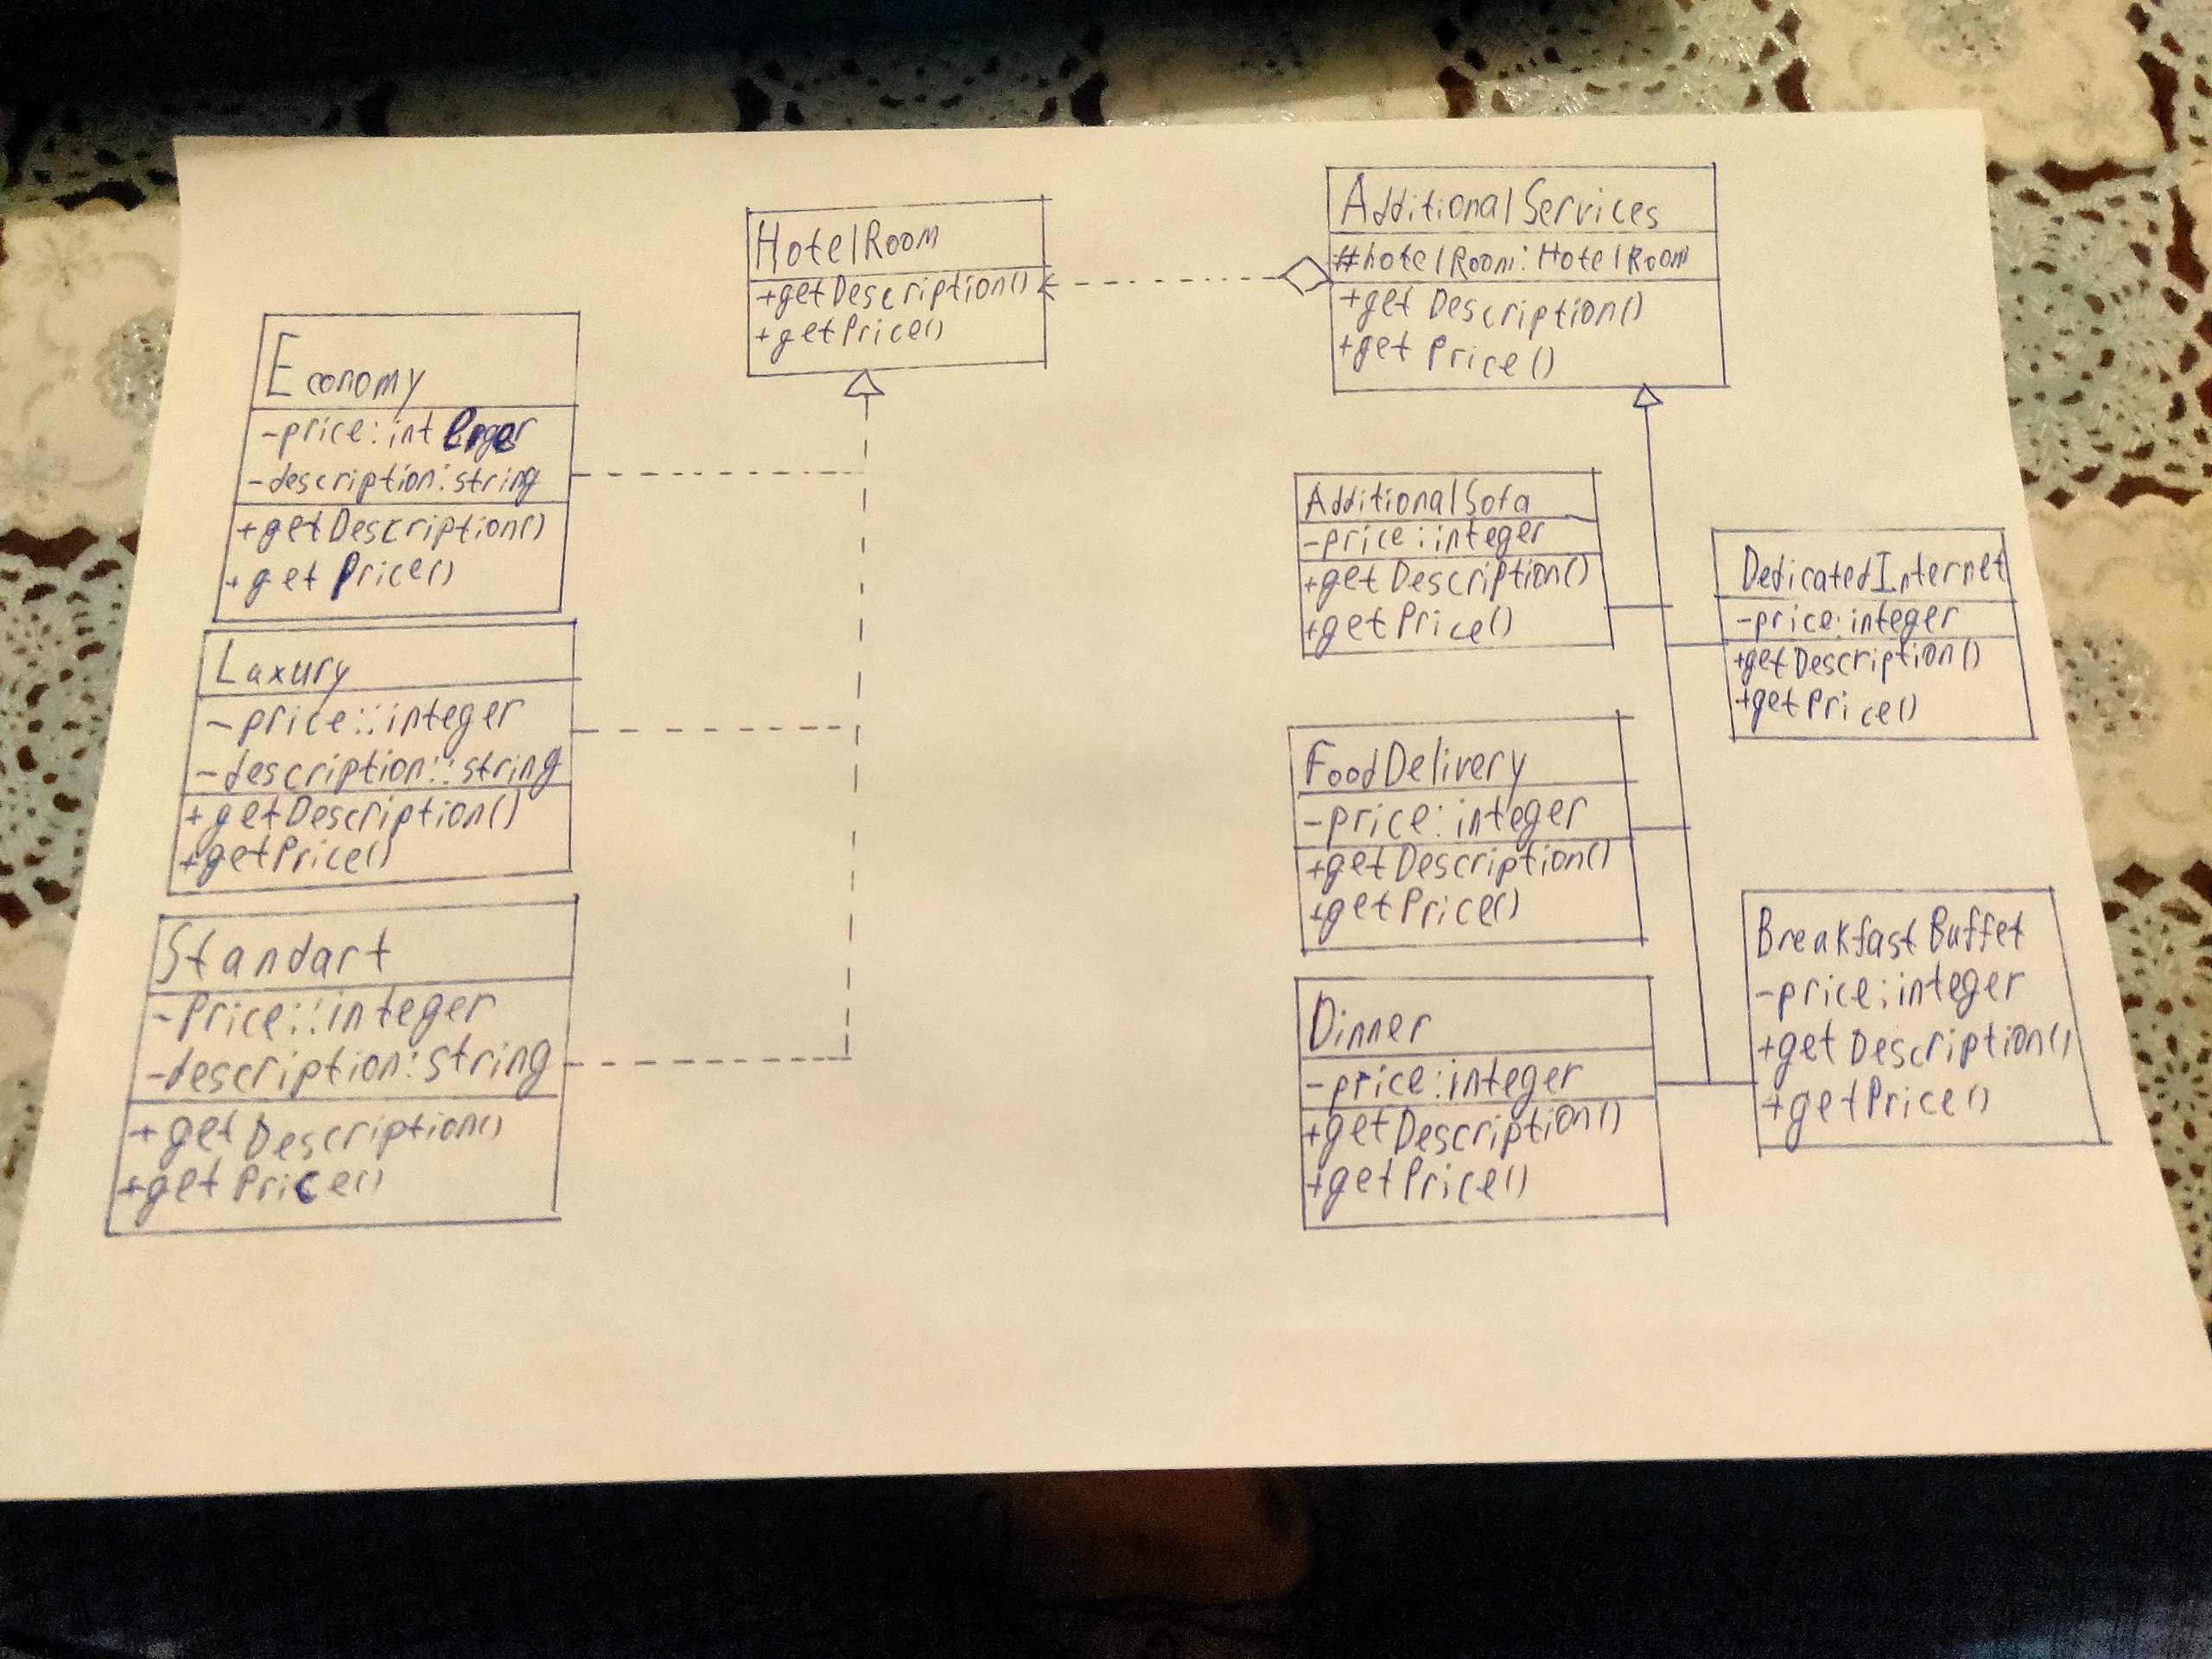 HotelRoom
+getDescription()
+getPrice()
AdditionalServices
#hotelRoom: HotelRoom
+get Description()
+get Price()
Economy
-price: integer
-description: string
+getDescription()
+get Price()
Laxury
-price:: integer
-description:: string
+getDescription()
+getPrice()
Standart
-Price:: integer
-description: string
+getDescription()
+getPrice()
AdditionalSofa
-price: integer
+getDescription()
+getPrice()
DedicatedInternet
-price: integer
+getDescription()
+getPrice()
FoodDelivery
-price: integer
+getDescription()
+getPrice()
BreakfastBuffet
-price: integer
+getDescription()
+getPrice()
Dinner
-price: integer
+getDescription()
+getPrice()